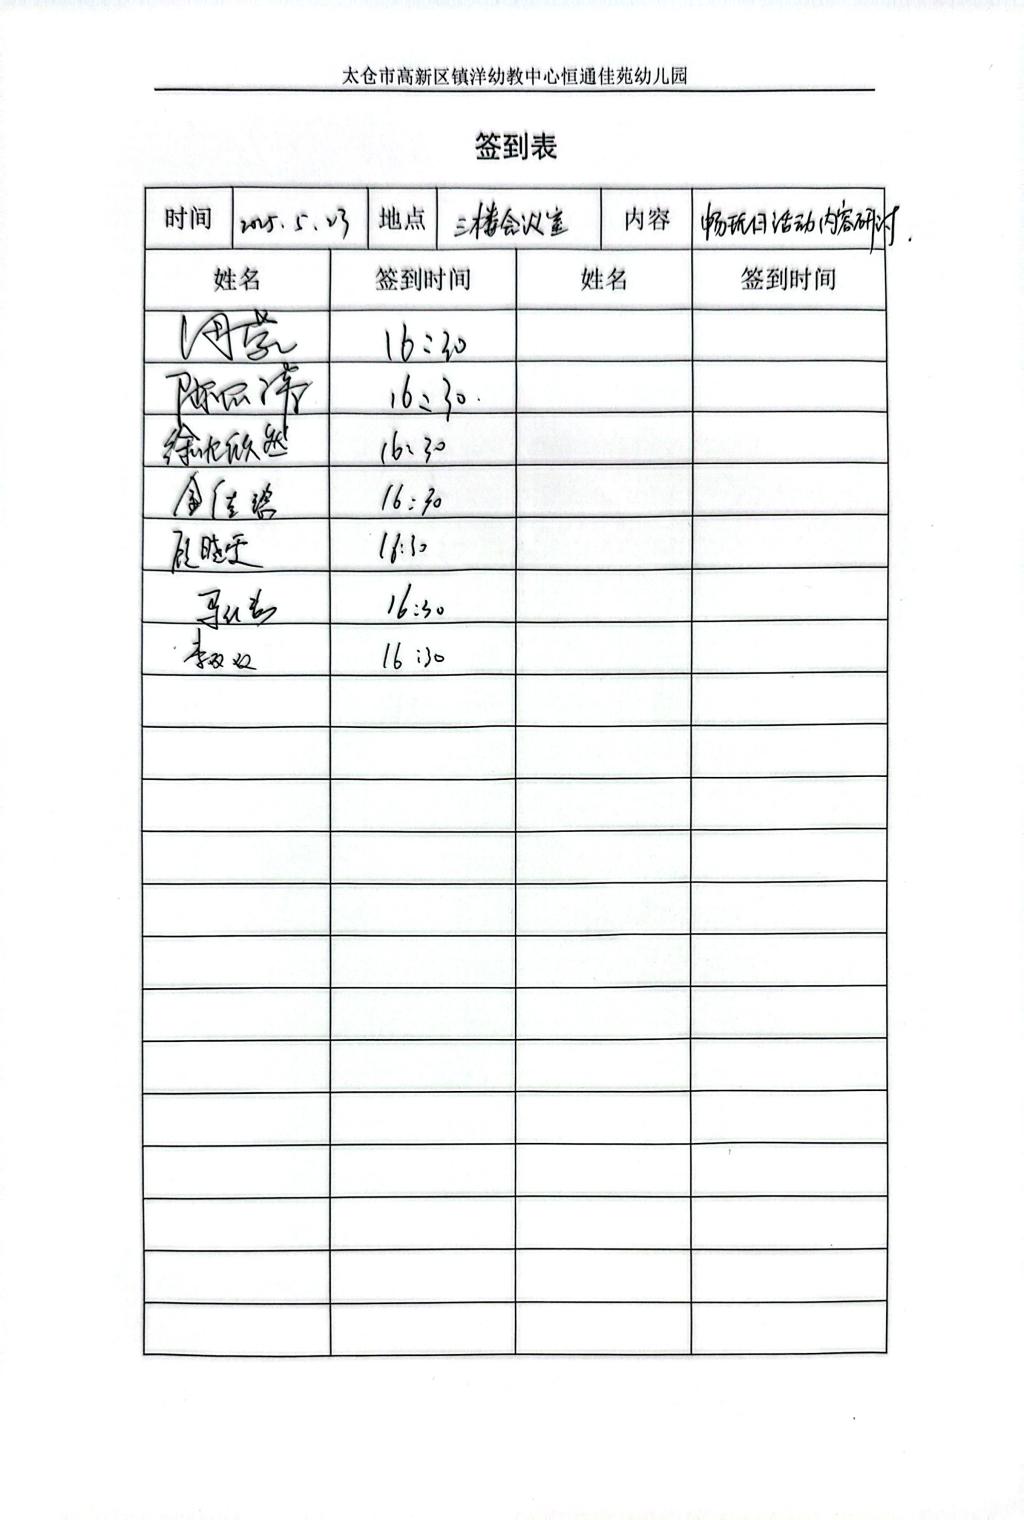 太仓市高新区镇洋幼教中心恒通佳苑幼儿园
签到表
时间 2025.5.23 地点 三楼会议室 内容 畅玩日活动内容研讨.
姓名 签到时间 姓名 签到时间
16:30
16:30.
徐欣然 16:30
金佳 16:30
顾晓雯 16:30
16:30
李双双 16:30